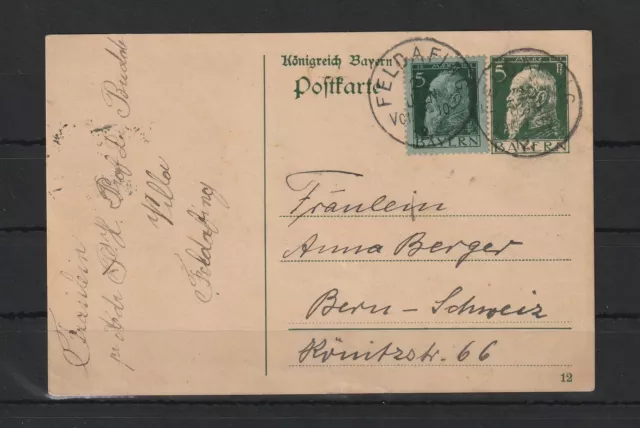 Königreich Bayern
Postkarte
FELDAFING
5 5
BAYERN BAYERN
Fräulein
Anna Berger
Bern - Schweiz
Könitzstr. 66
12
Fräulein
Prof. Dr.
Villa
Feldafing